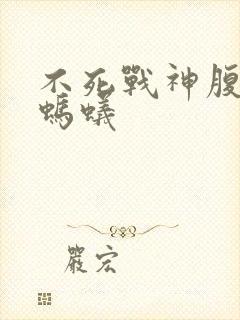 不死戰神腹
螞蟻
嚴宏